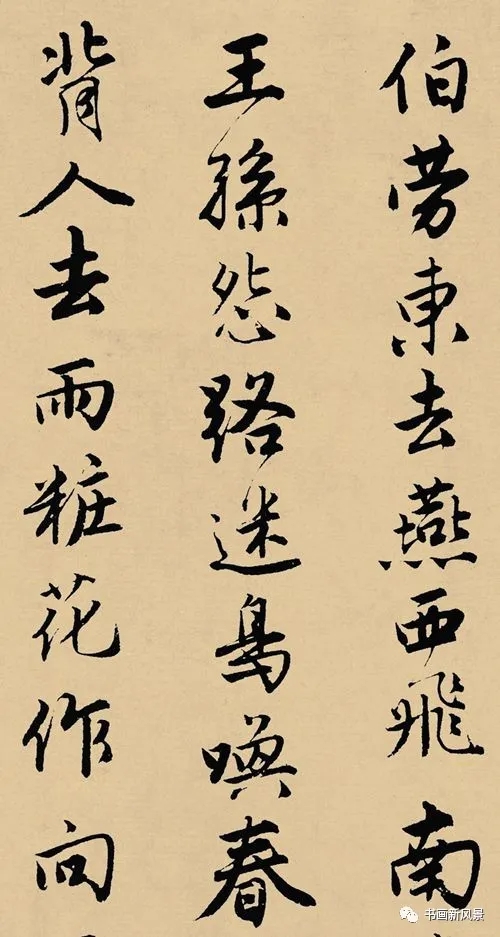 伯劳東去燕西飛南
王孫怨路迷鳥喚春
背人去雨粧花作向
书画新风景